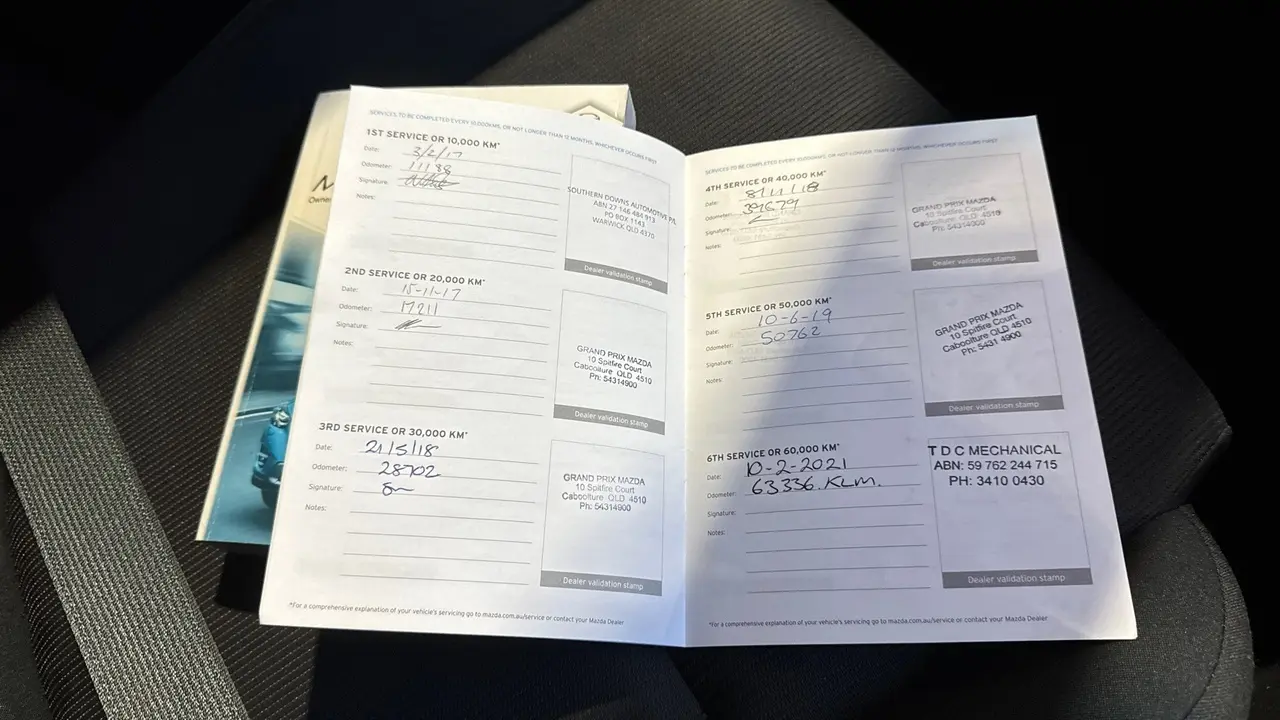 SERVICES TO BE COMPLETED EVERY 10,000KMS, OR NOT LONGER THAN 12 MONTHS, WHICHEVER OCCURS FIRST
1ST SERVICE OR 10,000 KM*
Date: 3/2/17
Odometer: 11188
Signature:
Notes:
SOUTHERN DOWNS AUTOMOTIVE P/L
ABN 27 146 484 913
PO BOX 1143
WARWICK QLD 4370
Dealer validation stamp
2ND SERVICE OR 20,000 KM*
Date: 15-11-17
Odometer: 17211
Signature:
Notes:
GRAND PRIX MAZDA
10 Spitfire Court
Caboolture QLD 4510
Ph: 54314900
Dealer validation stamp
3RD SERVICE OR 30,000 KM*
Date: 21/5/18
Odometer: 28702
Signature:
Notes:
GRAND PRIX MAZDA
10 Spitfire Court
Caboolture QLD 4510
Ph: 54314900
Dealer validation stamp
*For a comprehensive explanation of your vehicle's servicing go to mazda.com.au/service or contact your Mazda Dealer
SERVICES TO BE COMPLETED EVERY 10,000KMS, OR NOT LONGER THAN 12 MONTHS, WHICHEVER OCCURS FIRST
4TH SERVICE OR 40,000 KM*
Date: 8/11/18
Odometer: 39679
Signature:
Notes:
GRAND PRIX MAZDA
10 Spitfire Court
Caboolture QLD 4510
Ph: 54314900
Dealer validation stamp
5TH SERVICE OR 50,000 KM*
Date: 10-6-19
Odometer: 50762
Signature:
Notes:
GRAND PRIX MAZDA
10 Spitfire Court
Caboolture QLD 4510
Ph: 5431 4900
Dealer validation stamp
6TH SERVICE OR 60,000 KM*
Date: 10-2-2021
Odometer: 63336.KLM.
Signature:
Notes:
T D C MECHANICAL
ABN: 59 762 244 715
PH: 3410 0430
Dealer validation stamp
*For a comprehensive explanation of your vehicle's servicing go to mazda.com.au/service or contact your Mazda Dealer